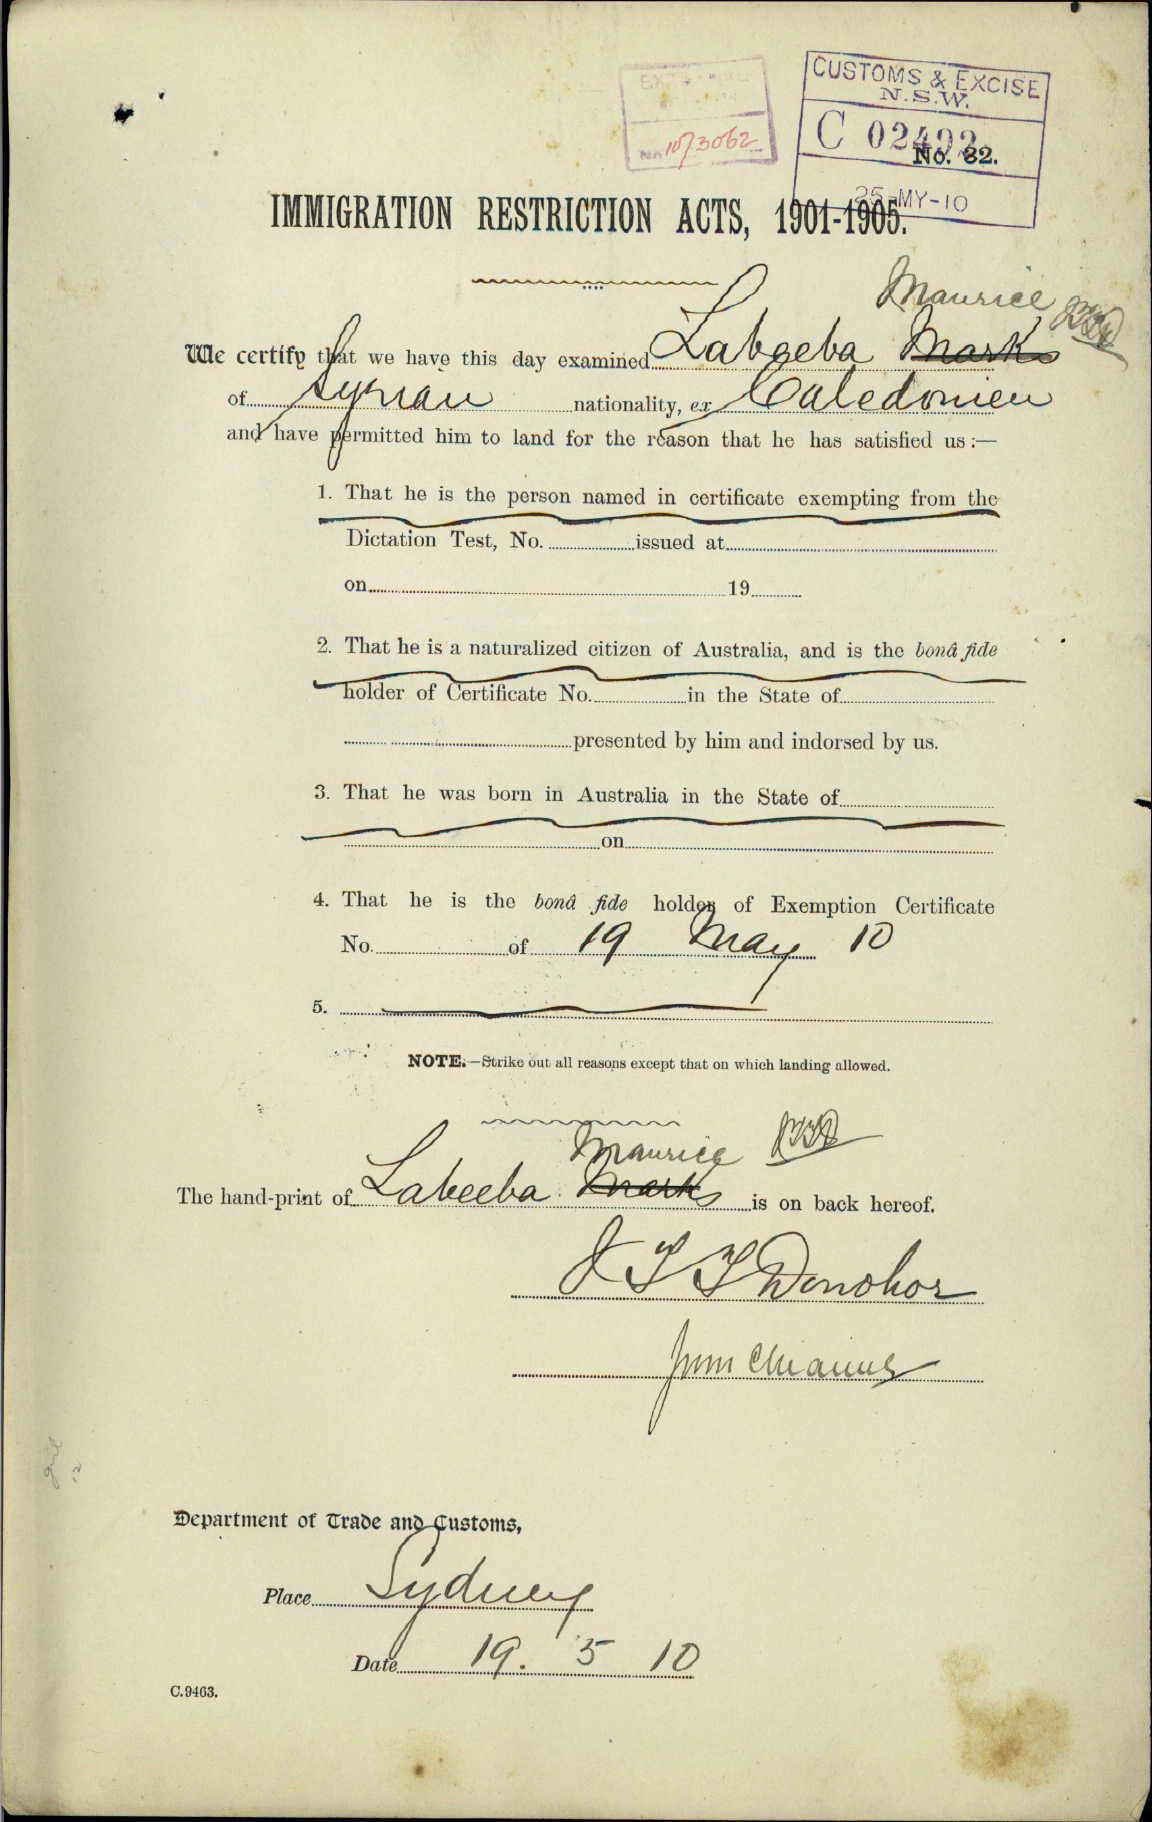 CUSTOMS & EXCISE
N.S.W.
C 02492
No. 32.
25-MY-10
No 10/3062
IMMIGRATION RESTRICTION ACTS, 1901-1905.
Maurice
We certify that we have this day examined Labeeba Marks
of Syrian nationality, ex Caledonien
and have permitted him to land for the reason that he has satisfied us :—
1. That he is the person named in certificate exempting from the
Dictation Test, No. issued at
on 19
2. That he is a naturalized citizen of Australia, and is the bonâ fide
holder of Certificate No. in the State of
presented by him and indorsed by us.
3. That he was born in Australia in the State of
on
4. That he is the bonâ fide holder of Exemption Certificate
No. of 19 May 10
5.
NOTE.—Strike out all reasons except that on which landing allowed.
Maurice
The hand-print of Labeeba Marks is on back hereof.
J T T Donohoe
Department of Trade and Customs,
Place Sydney
Date 19. 5 10
C.9463.